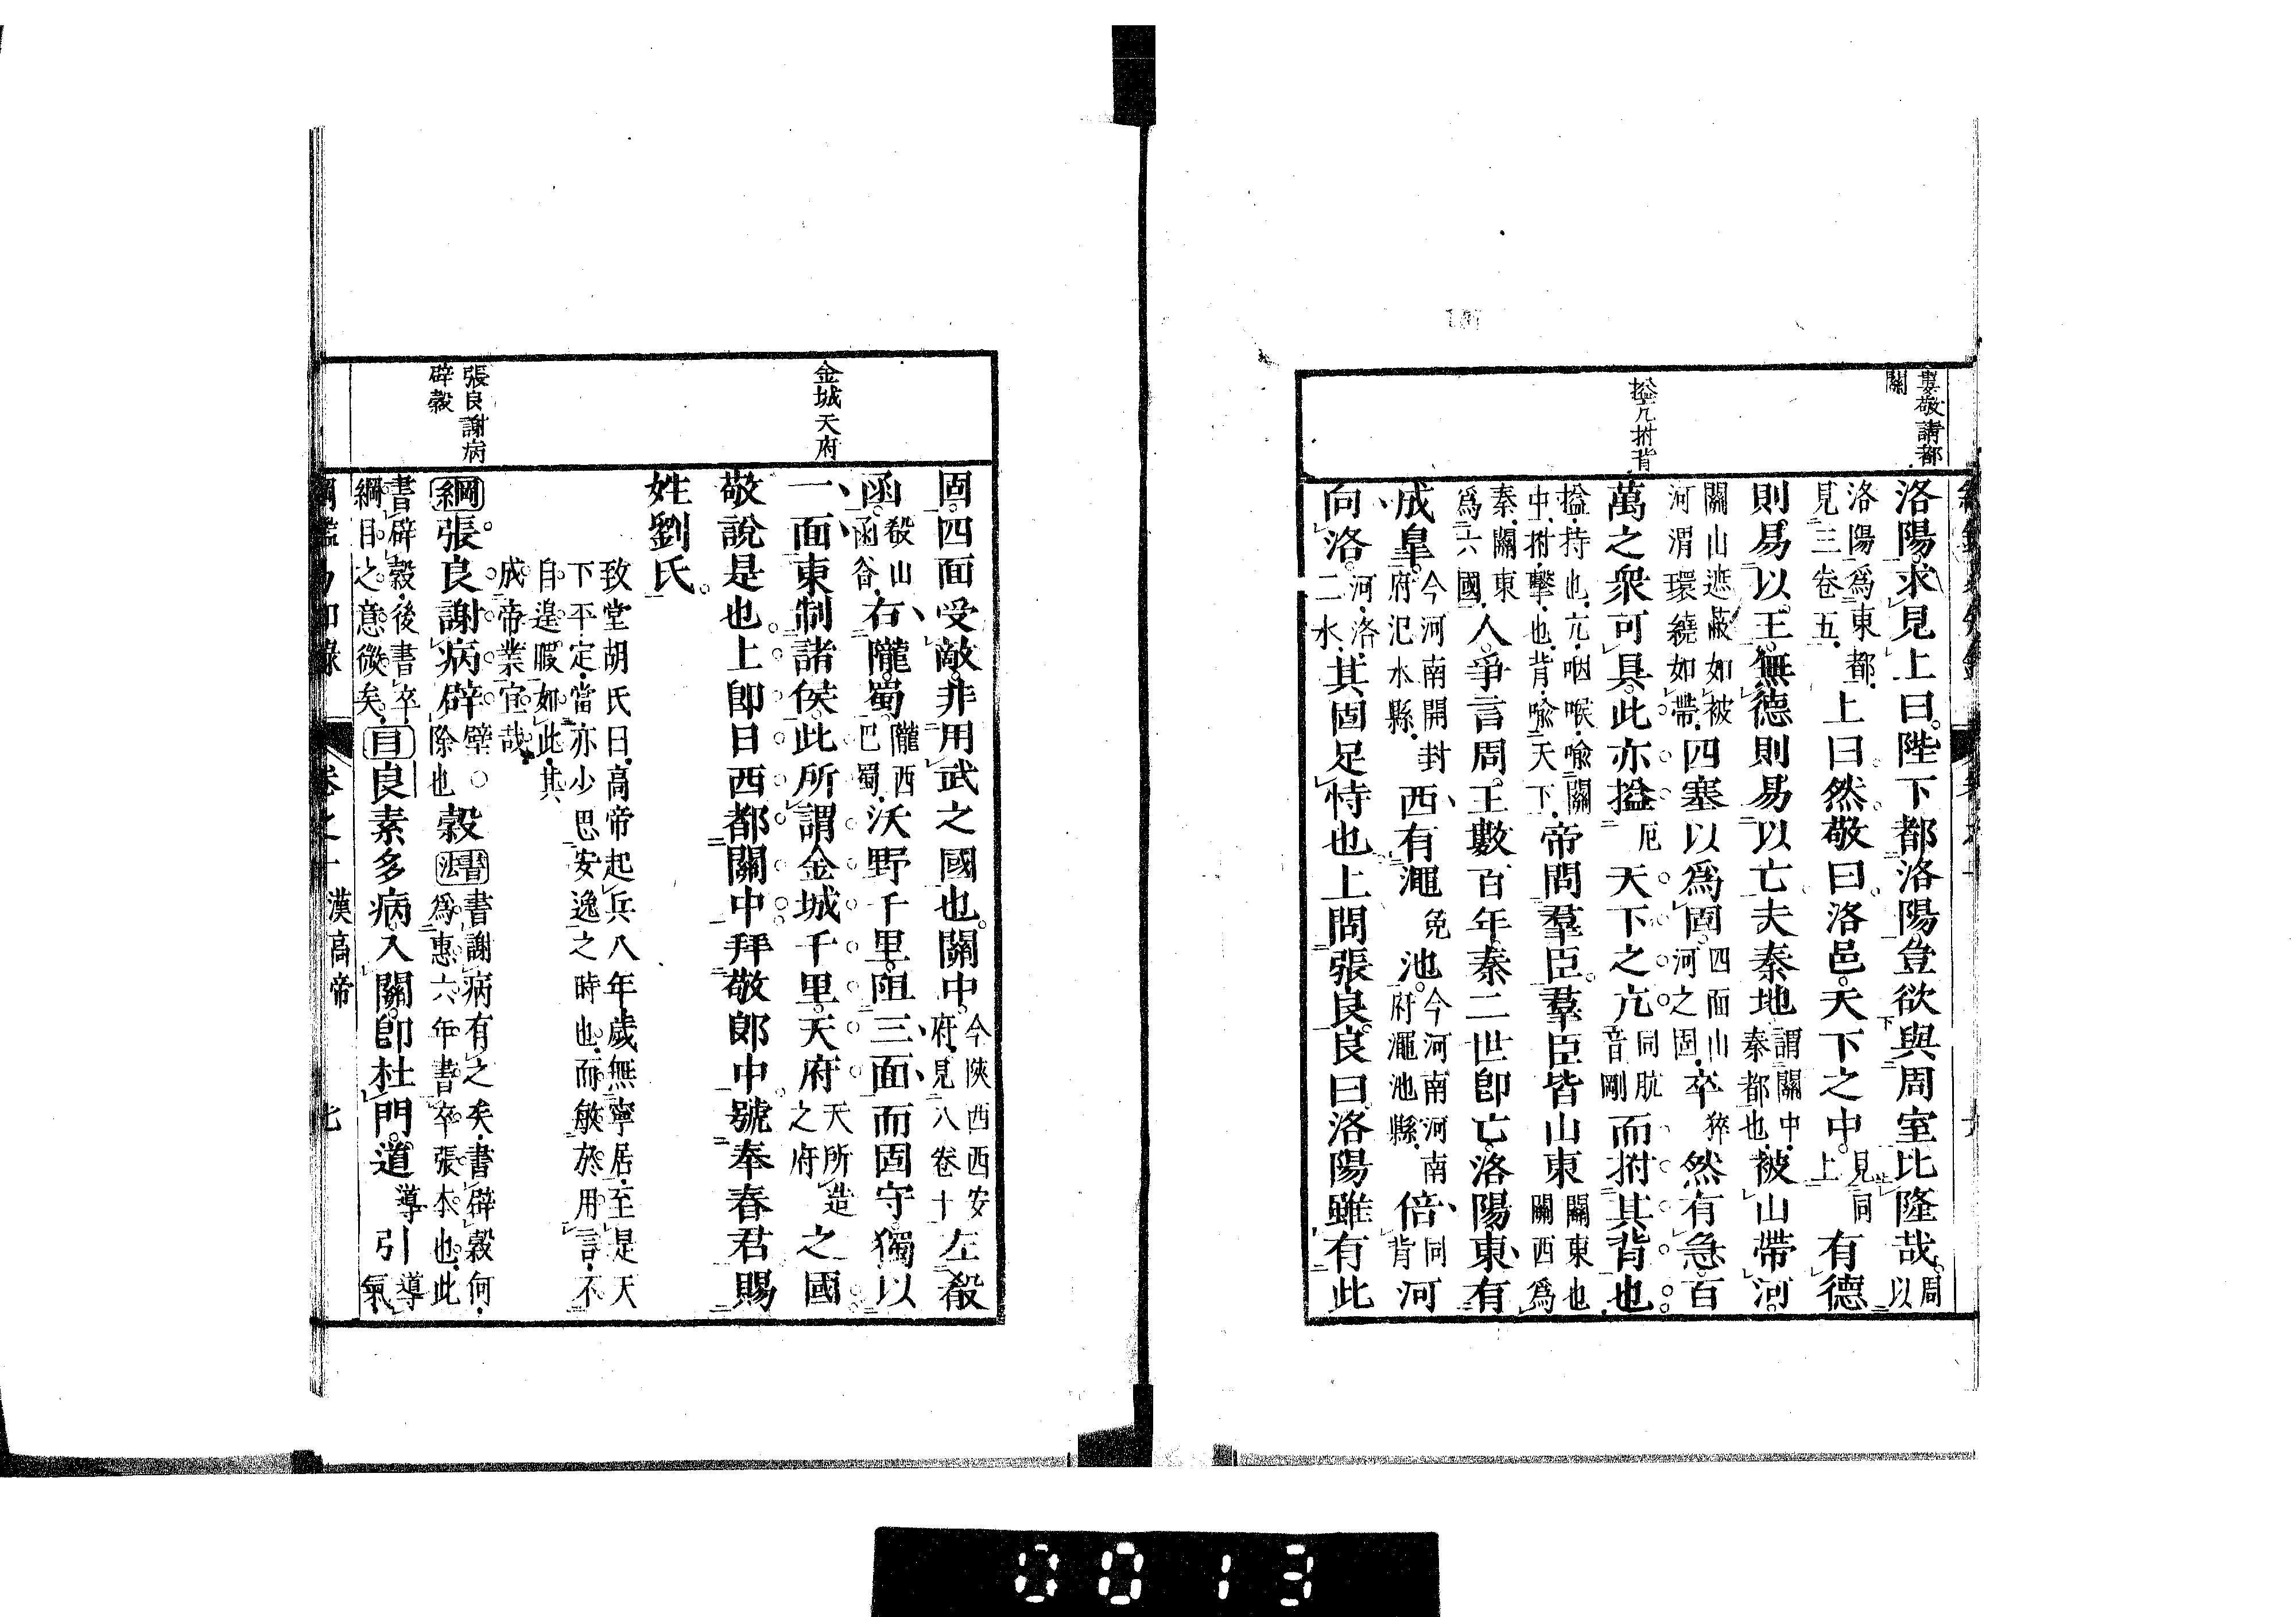 婁敬請都
關
搤亢拊背
洛陽求見上曰陛下都洛陽豈欲與周室比隆哉周以
洛陽爲東都見三卷五上曰然敬曰洛邑天下之中見同上有德
則易以王無德則易以亡夫秦地謂關中秦都也被山帶河
關山遮蔽如被河渭環繞如帶四塞以爲固四面山河之固卒猝然有急百
萬之衆可具此亦搤厄天下之亢同肮音剛而拊其背也
搤持也亢咽喉喩關中拊擊也背喩天下帝問羣臣羣臣皆山東關東也關西爲
秦關東爲六國人爭言周王數百年秦二世卽亡洛陽東有
成皐今河南開封府汜水縣西有澠免池今河南河南府澠池縣倍同背河
向洛河洛二水其固足恃也上問張良良曰洛陽雖有此
金城天府
張良謝病
辟穀
固四面受敵非用武之國也關中今陝西西安府見八卷十左殽
函殽山函谷右隴蜀隴西巴蜀沃野千里阻三面而固守獨以
一面東制諸侯此所謂金城千里天府天所造之府之國
敬說是也上卽日西都關中拜敬郎中號奉春君賜
姓劉氏
致堂胡氏曰高帝起兵八年歲無寧居至是天
下平定當亦少思安逸之時也而敏於用言不
自遑暇如此其
成帝業宜哉
綱張良謝病辟壁○除也穀書法書謝病有之矣書辟穀何爲惠六年書卒張本也此
書辟穀後書卒綱目之意微矣目良素多病入關卽杜門道導引導氣
卷之一 漢高帝 七